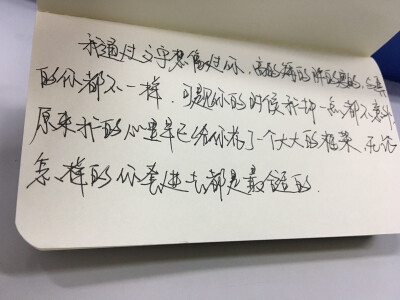 我通过文字想象过你，高的矮的胖的瘦的，每
的你都不一样，可见你的时候我却一点都不意外
原来我的心里早已给你花了一个大大的框架，无论
怎么样的你套进去都是最合适的.